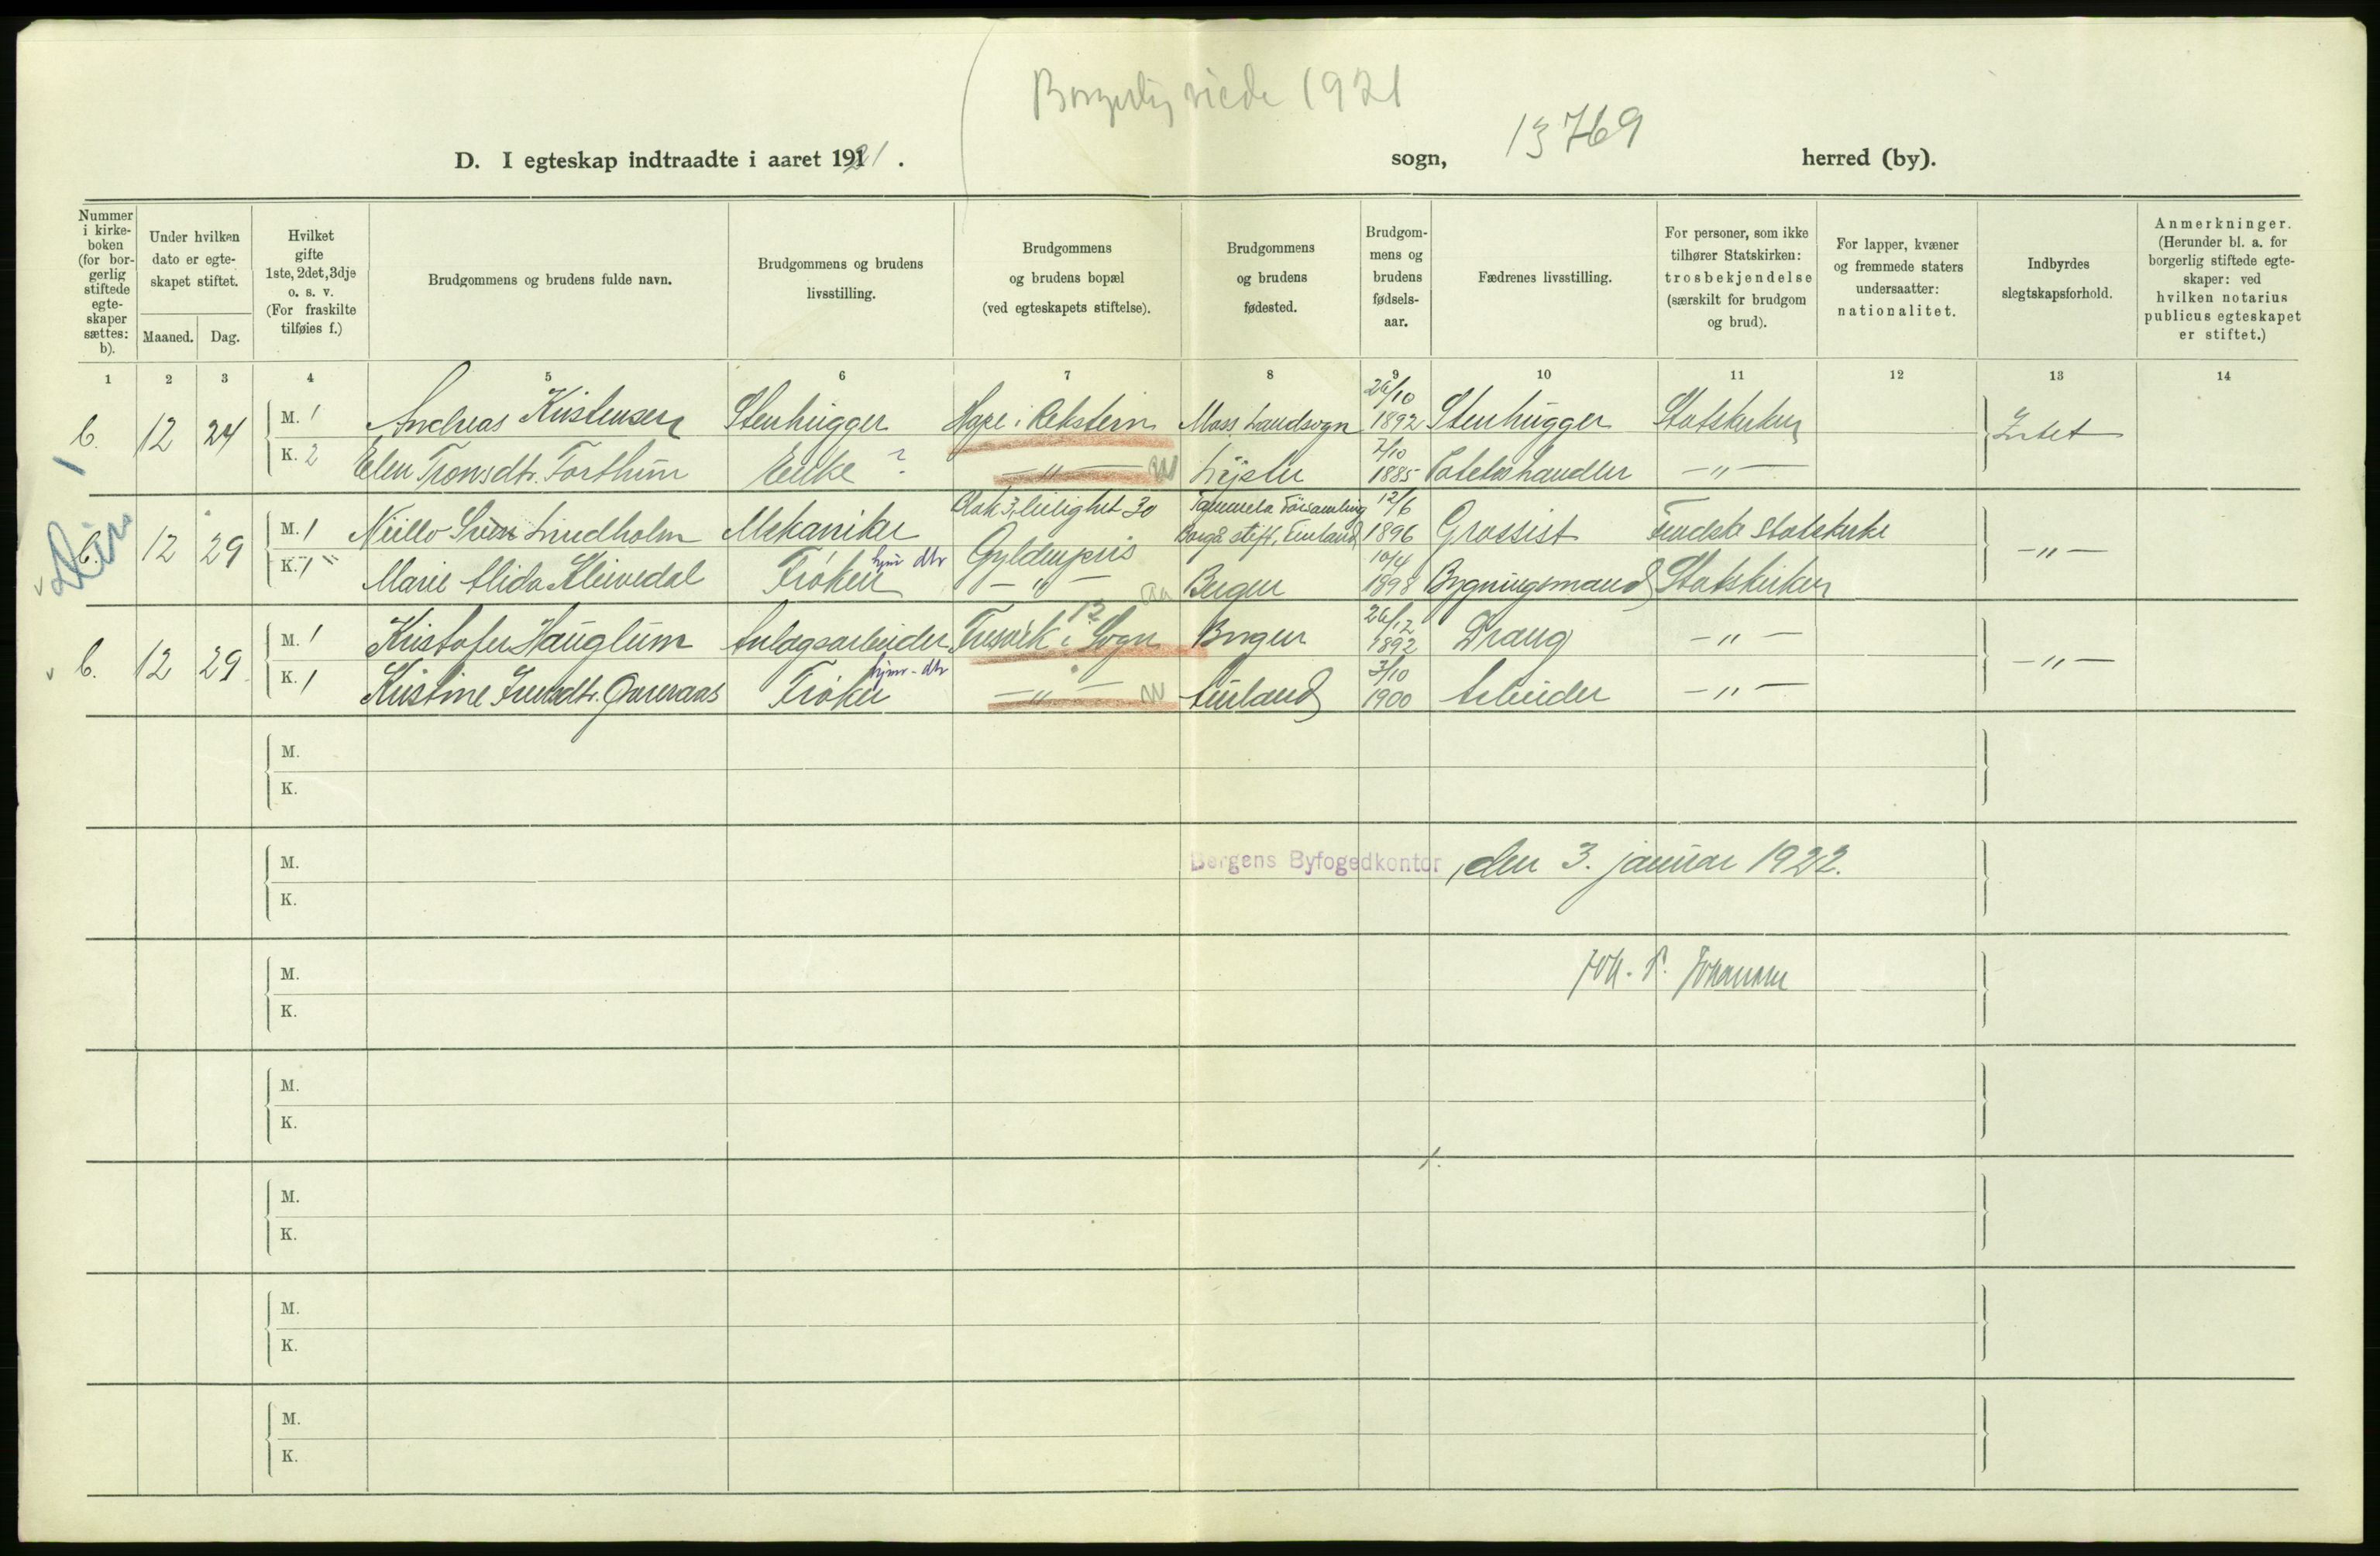 Borgerlig viede 1921
13769
D. I egteskap indtraadte i aaret 1921.
sogn,
herred (by).
Nummer i kirkeboken (for borgerlig stiftede egteskaper sættes: b).
Under hvilken dato er egteskapet stiftet.
Maaned. Dag.
Hvilket gifte 1ste, 2det, 3dje o. s. v. (For fraskilte tilføies f.)
Brudgommens og brudens fulde navn.
Brudgommens og brudens livsstilling.
Brudgommens og brudens bopæl (ved egteskapets stiftelse).
Brudgommens og brudens fødested.
Brudgommens og brudens fødselsaar.
Fædrenes livsstilling.
For personer, som ikke tilhører Statskirken: trosbekjendelse (særskilt for brudgom og brud).
For lapper, kvæner og fremmede staters undersaatter: nationalitet.
Indbyrdes slegtskapsforhold.
Anmerkninger. (Herunder bl. a. for borgerlig stiftede egteskaper: ved hvilken notarius publicus egteskapet er stiftet.)
1 2 3 4 5 6 7 8 9 10 11 12 13 14
b. 12 24 M. 1 Andreas Kristensen Stenhugger Hope i Rekstern Moss landsogn 26/10 1892 Stenhugger Statskirken Intet
K. 2 Elen Tronsdtr. Forthun Enke ? -"- Lyster 7/10 1885 -"-
b. 12 29 M. 1 Lindholm Mekaniker Blok 3, leilighet 30 Tammela Församling Borgå stift, Finland 12/6 1896 Grossist Findske Statskirke -"-
K. 1 Marie Alida Kleivedal Frøken hjm dtr Gyldenpris -"- Bergen 10/4 1898 Bygningsmand Statskirken
b. 12 29 M. 1 Kristofer Hauglum Anlagsarbeider Fresvik i Sogn Bergen 26/12 1892 -"- -"-
K. 1 Kristine Frøken hjm-dtr -"- Aurland 3/10 1900 Arbeider -"-
M.
K.
M.
Bergens Byfogedkontor, den 3. januar 1922.
K.
M.
Joh. P. Johannesen
K.
M.
K.
M.
K.
M.
K.
M.
K.